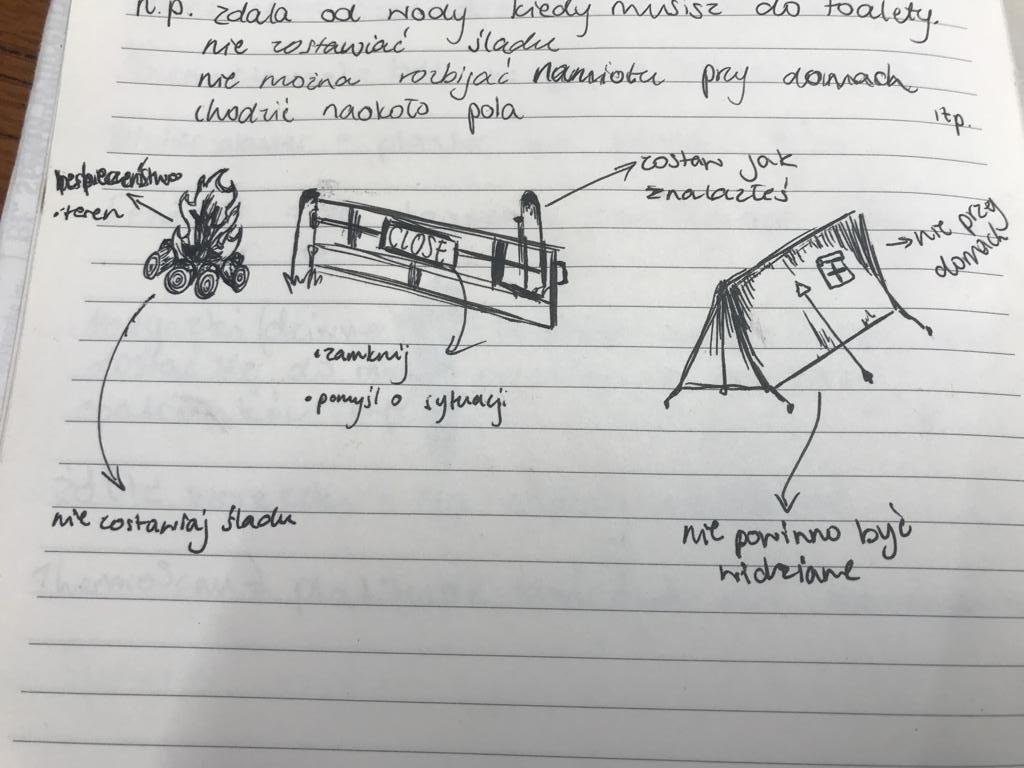 n.p. zdala od wody kiedy musisz do toalety.
nie zostawiać śladu
nie można rozbijać namiotu przy domach
chodzić naokoło pola
itp.
bespieczeństwo
• teren
zostaw jak
znalazłeś
CLOSE
→ nie przy
domach
• zamknij
• pomyśl o sytuacji
nie zostawiaj śladu
nie powinno być
widziane